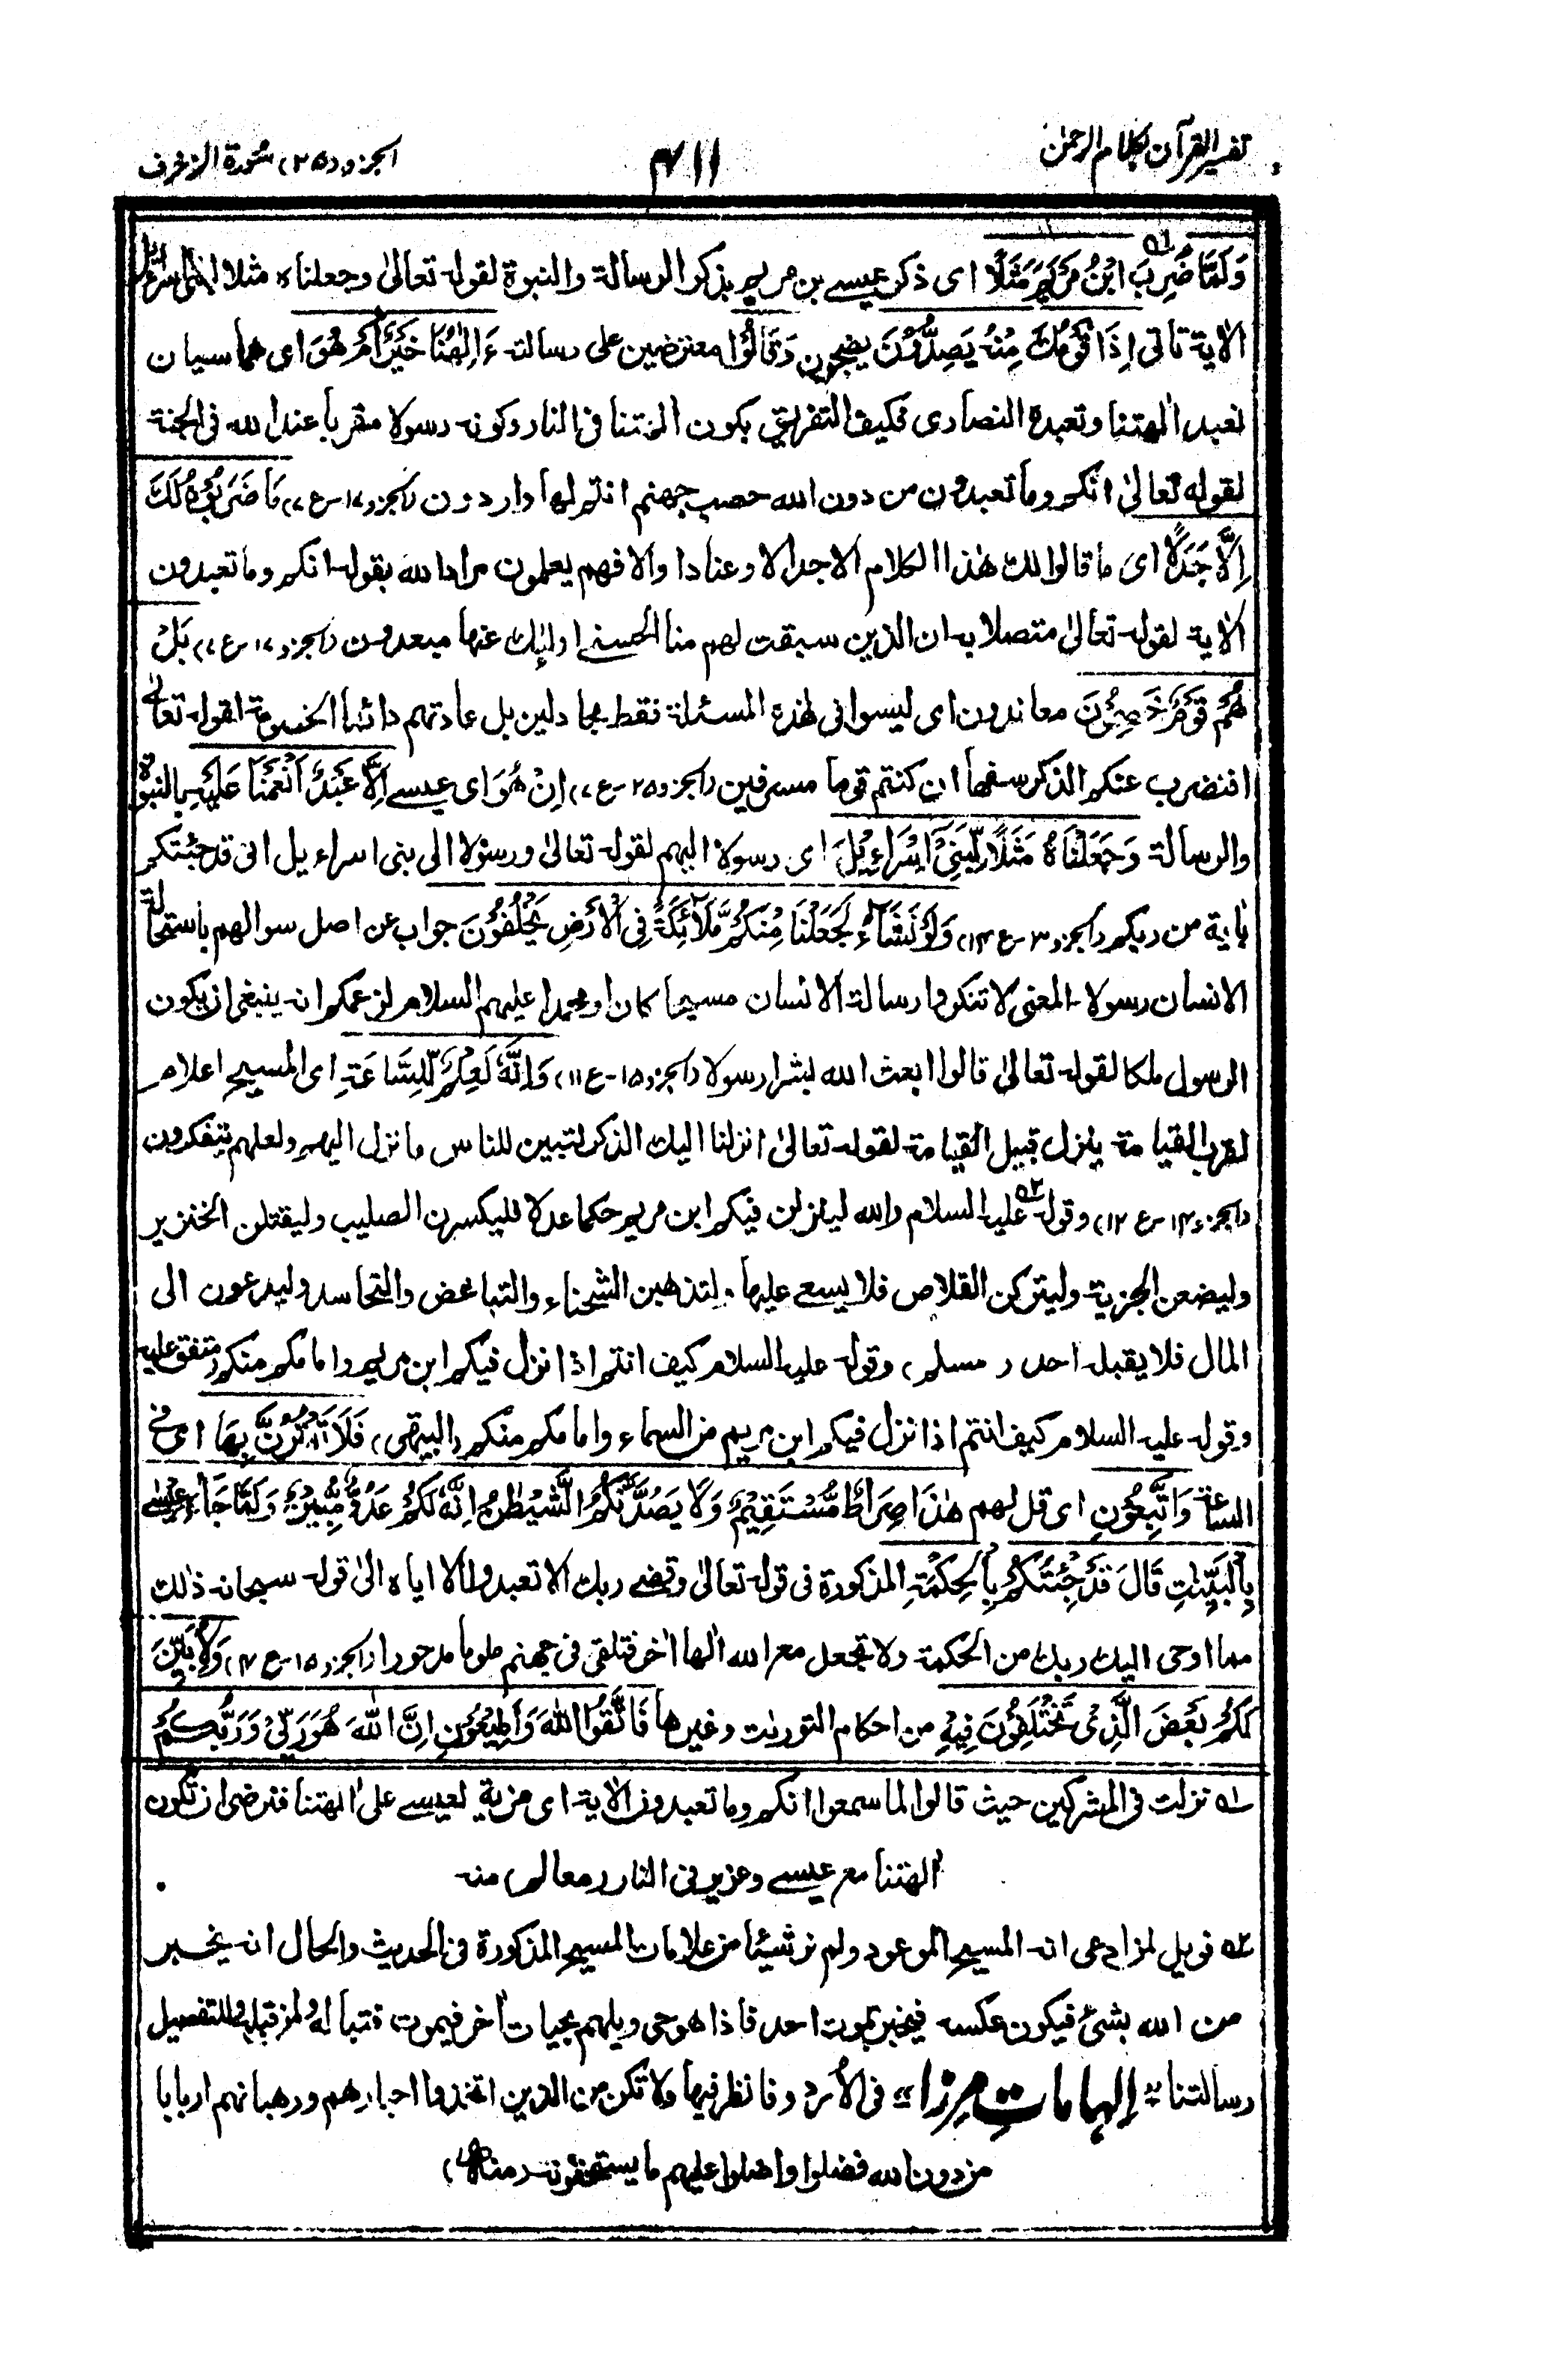 تفسير القرآن بكلام الرحمن
٣١١
الجزو (٢٥) سورة الزخرف
وَلَمَّا ضُرِبَ ابْنُ مَرْيَمَ مَثَلًا اى ذكر عيسے بن مريم بذكر الرسالة والنبوة لقوله تعالىٰ وجعلناه مثلا لبنى اسرائيل
الاٰية تاتى إِذَا قَوْمُكَ مِنْهُ يَصِدُّوْنَ يضجون وَقَالُوْا معترضين على رسالته ءَاٰلِهَتُنَا خَيْرٌ أَمْ هُوَ اى هما سيان
نعبد اٰلهتنا وتعبده النصارى فكيف التفريق بكون اٰلهتنا فى النار وكونه رسولا مقربا عند الله فى الجنة
لقوله تعالىٰ انكم وما تعبدون من دون الله حصب جهنم انتم لها واردون (الجزو ١٧ - ع ٧) مَا ضَرَبُوْهُ لَكَ
إِلَّا جَدَلًا اى ما قالوا لك هٰذا الكلام الا جدالا وعنادا والا فهم يعلمون مراد الله بقوله انكم وما تعبدون
الاٰية لقوله تعالىٰ متصلا به ان الذين سبقت لهم منا الحسنے اولٰئك عنها مبعدون (الجزو ١٧ - ع ٧) بَلْ
هُمْ قَوْمٌ خَصِمُوْنَ معاندون اى ليسوا فى هٰذه المسئلة فقط مجادلين بل عادتهم دائما الخصومة لقوله تعالىٰ
افنضرب عنكم الذكر صفحا ان كنتم قوما مسرفين (الجزو ٢٥ - ع ٧) اِنْ هُوَ اى عيسے اِلَّا عَبْدٌ أَنْعَمْنَا عَلَيْهِ بالنبوة
والرسالة وَجَعَلْنَاهُ مَثَلًا لِّبَنِىْ اِسْرَاءِيْلَ اى رسولا اليهم لقوله تعالىٰ ورسولا الى بنى اسراءيل انى قد جئتكم
باٰية من ربكم (الجزو ٣ - ع ١٣) وَلَوْ نَشَاءُ لَجَعَلْنَا مِنْكُمْ مَّلَائِكَةً فِى الْأَرْضِ يَخْلُفُوْنَ جواب عن اصل سوالهم باستحالة
الانسان رسولا - المعنى لا تنكروا رسالة الانسان مسيحا كان او محمدا عليهم السلام لزعمكم انه ينبغى ان يكون
الرسول ملكا لقوله تعالىٰ قالوا ابعث الله بشرا رسولا (الجزو ١٥ - ع ١١) وَاِنَّهٗ لَعِلْمٌ لِّلسَّاعَةِ اى المسيح اعلام
لقرب القيامة ينزل قبيل القيامة لقوله تعالىٰ انزلنا اليك الذكر لتبين للناس ما نزل اليهم ولعلهم يتفكرون
(الجزو ١٤ - ع ١٢) وقوله عليه السلام والله لينزلن فيكم ابن مريم حكما عدلا فليكسرن الصليب وليقتلن الخنزير
وليضعن الجزية وليتركن القلاص فلا يسعى عليها . لتذهبن الشحناء والتباغض والتحاسد وليدعون الى
المال فلا يقبله احد (مسلم) وقوله عليه السلام كيف انتم اذا نزل فيكم ابن مريم وامامكم منكم (متفق عليه
وقوله عليه السلام كيف انتم اذا نزل فيكم ابن مريم من السماء وامامكم منكم (البيهقى) فَلَا تَمْتَرُنَّ بِهَا اى فى
الساعة وَاتَّبِعُوْنِ اى قل لهم هٰذَا صِرَاطٌ مُّسْتَقِيْمٌ وَلَا يَصُدَّنَّكُمُ الشَّيْطٰنُ اِنَّهٗ لَكُمْ عَدُوٌّ مُّبِيْنٌ وَلَمَّا جَاءَ عِيْسٰے
بِالْبَيِّنٰتِ قَالَ قَدْ جِئْتُكُمْ بِالْحِكْمَةِ المذكورة فى قوله تعالىٰ وقضے ربك الا تعبدوا الا اياه الىٰ قوله سبحانه ذٰلك
مما اوحى اليك ربك من الحكمة ولا تجعل مع الله الٰها اٰخر فتلقى فى جهنم ملوما مدحورا (الجزو ١٥ - ع ٤) وَلِأُبَيِّنَ
لَكُمْ بَعْضَ الَّذِىْ تَخْتَلِفُوْنَ فِيْهِ من احكام التوريٰت وغيرها فَاتَّقُوا اللّٰهَ وَأَطِيْعُوْنِ اِنَّ اللّٰهَ هُوَ رَبِّىْ وَرَبُّكُمْ
١ه نزلت فى المشركين حيث قالوا لما سمعوا انكم وما تعبدون الاٰية اى مزية لعيسے علىٰ اٰلهتنا فنرضى ان تكون
اٰلهتنا مع عيسے وعزير فى النار (معالم) منه
٢ه فويل لمن ادعى انه المسيح الموعود ولم نر شيئا من علامات المسيح المذكورة فى الحديث والحال انه يخبر
من الله بشئ فيكون عكسه فيخبر بموت احد فاذا هو حى ويلهم بحيات اٰخر فيموت فتبا له ولمن قبله وللتفصيل
رسالتنا "إلهاماتِ مرزا" فى الأردو فانظر فيها ولا تكن من الذين اتخذوا احبارهم ورهبانهم اربابا
من دون الله فضلوا واضلوا عليهم ما يستحقونه (منه)